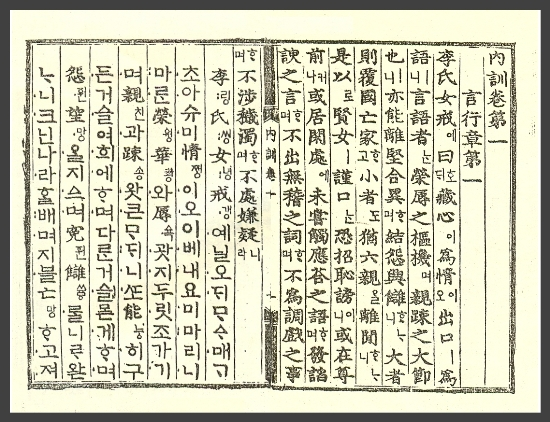 內訓卷第一
言行章第一
李氏女戒예曰호ᄃᆡ藏心이爲情이오出口ㅣ爲
語ㅣ니言語者ᄂᆞᆫ榮辱之樞機며親踈之大節
也ㅣ니亦能離堅合異ᄒᆞ며結怨興讎ᄒᆞᄂᆞ니大者
則覆國亡家ᄒᆞ고小者도猶六親을離間ᄒᆞᄂᆞ니
是以로賢女ㅣ謹口ᄂᆞᆫ恐招恥謗이니或在尊
前커나或居閑處에未嘗觸應答之語ᄒᆞ며發謟
諛之言ᄒᆞ며不出無稽之詞ᄒᆞ며不爲調戱之事
ᄒᆞ며不涉穢濁ᄒᆞ며不處嫌疑니라
內訓卷一
李링氏씽女녕戒갱예닐오ᄃᆡᄆᆞᅀᆞ매ᄀᆞ
초아슈미情쪙이오이베내요미마리니
마ᄅᆞᆫ榮ᅌᅯᆼ華ᅘᅪᆼ와辱ᅀᅭᆨ괏지두릿조가기
며親친과踈송왓큰ᄆᆞ디니ᄯᅩ能능히구
든거슬여희에ᄒᆞ며다ᄅᆞᆫ거슬몯게ᄒᆞ며
怨ᅙᅯᆫ望망ᄋᆞᆯ지ᅀᅳ며寃ᅙᅯᆫ讎쓩ᄅᆞᆯ니ᄅᆞ완
ᄂᆞ니크닌나라ᄒᆞᆯ배며지블亡망ᄒᆞ고져